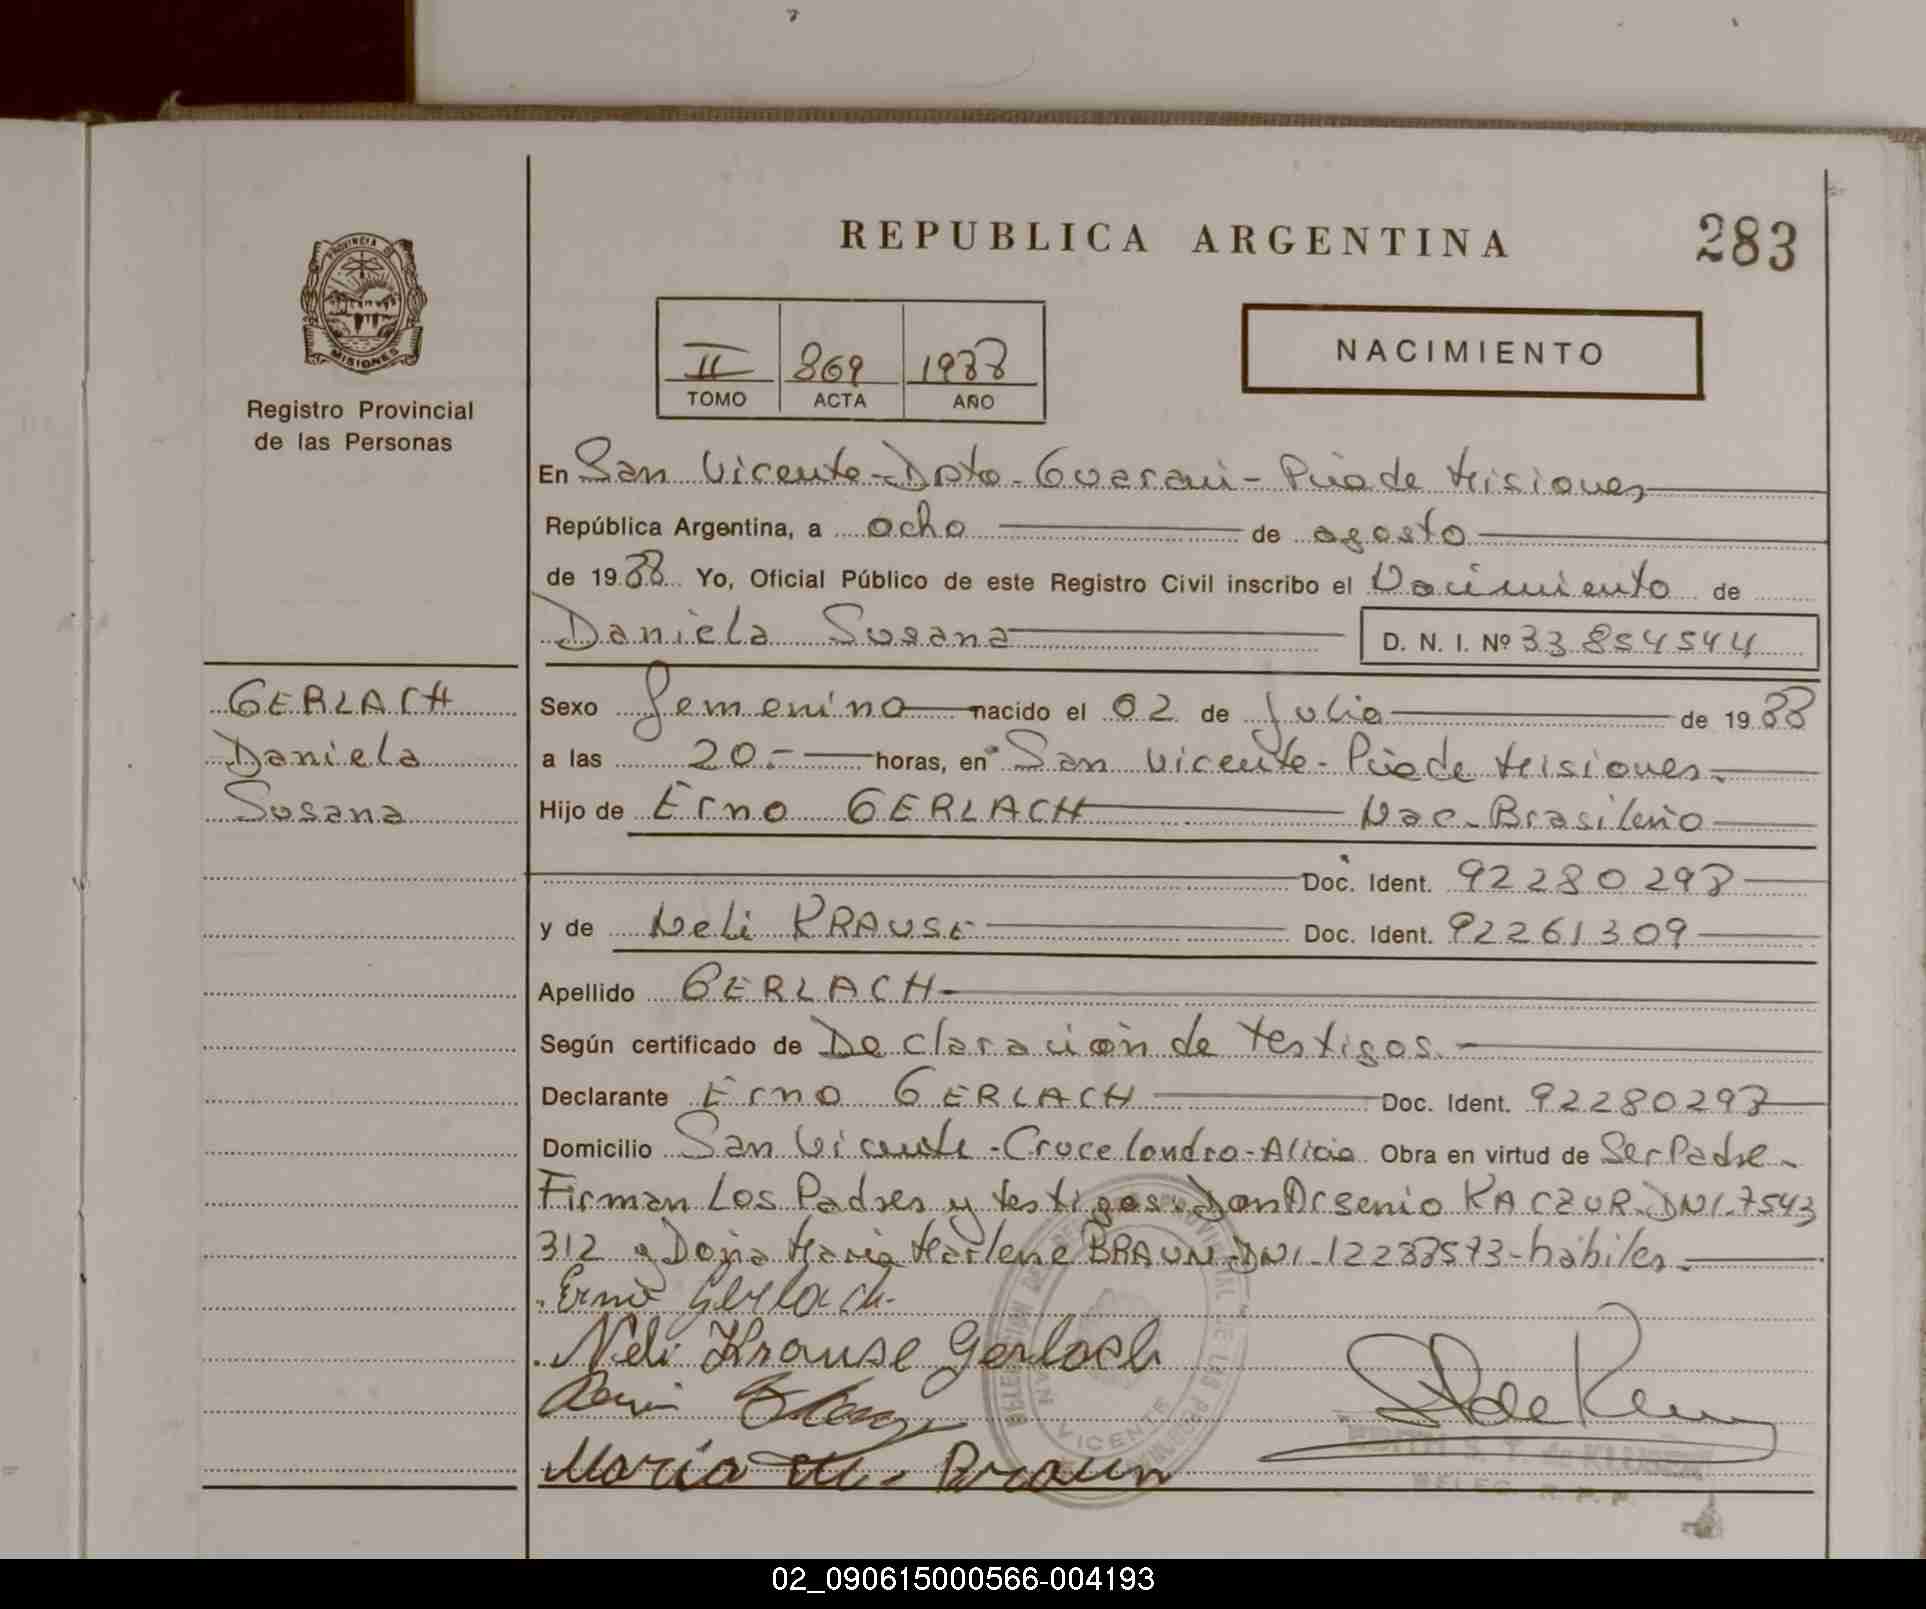 REPUBLICA ARGENTINA
283
PROVINCIA DE
MISIONES
Registro Provincial
de las Personas
II 869 1988
TOMO ACTA AÑO
NACIMIENTO
En San Vicente-Dpto-Guarani-Pcia de Misiones
República Argentina, a ocho de agosto
de 1988 Yo, Oficial Público de este Registro Civil inscribo el Nacimiento de
Daniela Susana D. N. I. Nº 33854544
GERLACH
Daniela
Susana
Sexo Femenino nacido el 02 de Julio de 1988
a las 20.- horas, en San Vicente-Pcia de Misiones.
Hijo de Erno GERLACH Nac-Brasileño
Doc. Ident. 92280298
y de Neli KRAUSE Doc. Ident. 92261309
Apellido GERLACH
Según certificado de Declaración de testigos.
Declarante Erno GERLACH Doc. Ident. 92280298
Domicilio San Vicente-Cruce Londro-Alicia Obra en virtud de Ser Padre-
Firman Los Padres y testigos: Don Arsenio KACZUR-DNI-7543
312 y Doña Maria Marlene BRAUN-DNI-12288573-hábiles.
Erno Gerlach.
Neli Krause Gerlach
Maria M. Braun
VICENTE
EDITH S. T. de KLUSEN
DELEG. R. P. P.
02_090615000566-004193